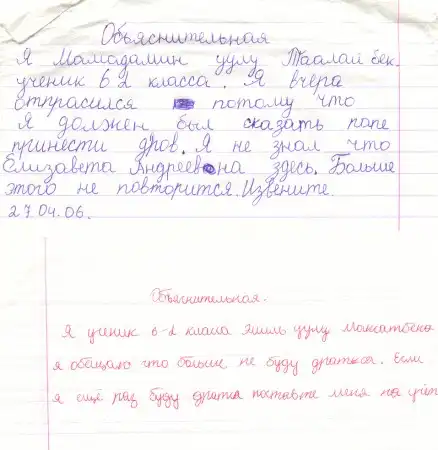 Объяснительная
Я Мамадамин уулу Таалайбек.
ученик 6 2 класса. Я вчера
отпрасился потому что
я должен был сказать папе
принести дров. Я не знал что
Елизавета Андреевна здесь. Больше
этого не повторится. Извените.
27.04.06.
Объяснительная.
Я ученик 6-2 класса уулу
я обещаю что больше не буду драться. Если
я ещё раз буду дратса поставте меня на учёт